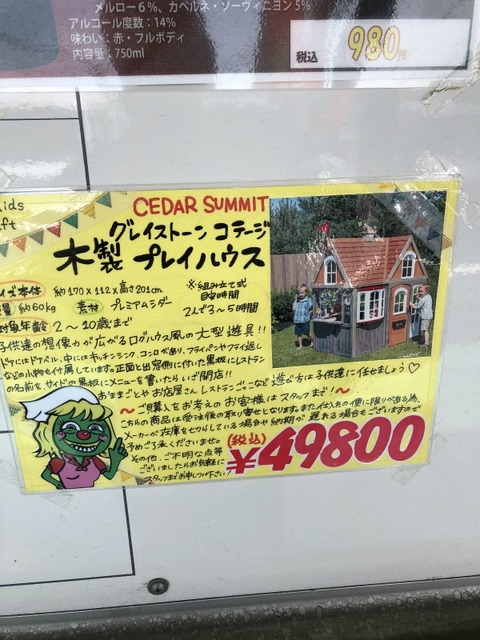 メルロー6%、カベルネ・ソーヴィニヨン5%
アルコール度数：14%
味わい：赤・フルボディ
内容量：750ml
税込 980円
CEDAR SUMMIT
グレイストーン コテージ
木製 プレイハウス
本体 約170×112×高さ201cm
約60kg 素材 プレミアムシダー
※組み立て式
目安時間
2人で3～5時間
対象年齢 2～10歳まで
子供達の想像力が広がるログハウス風の大型遊具!!
ドアにはドアベル、中にはキッチンシンク、コンロがあり、フライパンやフライ返し
などの小物も付属しています。正面と出窓側に付いた黒板にレストラン
の名前を サイドの黒板にメニューを書いたらいざ開店!!
おままごとや お店屋さん レストランごっこなど 遊び方は子供達に任せましょう♡
～ご購入をお考えの お客様は スタッフまで!～
こちらの商品は受注後の取り寄せとなります。また仕入れの便に限りがある為、
メーカーが在庫を切らしている場合や納期が遅れる場合もございますので
予めご了承くださいませ。
その他、ご不明な点等
ございましたらお気軽に
スタッフまでお申しつけ下さい。
(税込)
¥49800